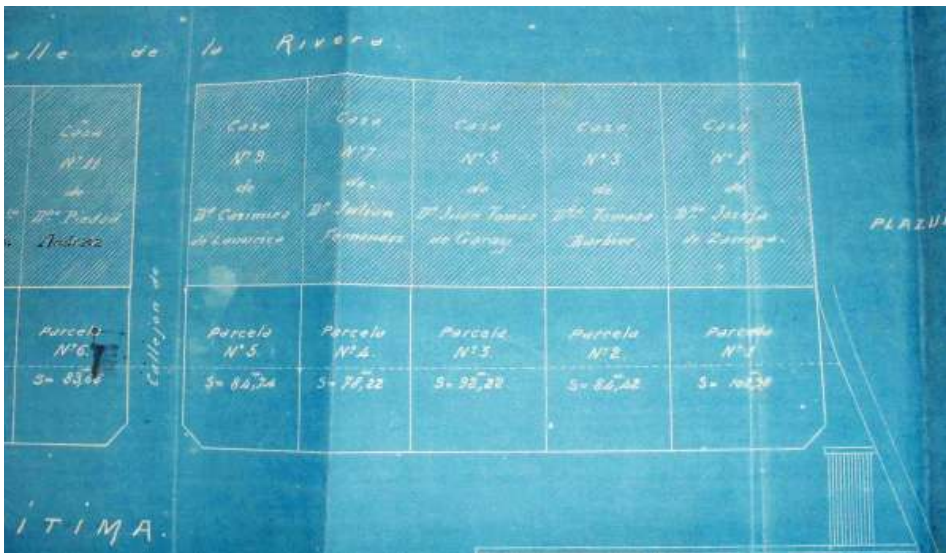 alle de la Rivera
Casa
Nº 11
de
Dña Piedad
Andraz
Casa
Nº 9
de
Dn Casimiro
de
Casa
Nº 7
de
Dn Julian
Fernandez
Casa
Nº 5
de
Dn Juan Tomás
de Garay
Casa
Nº 3
de
Dña Tomasa
Barbier
Casa
Nº 1
de
Dña Josefa
de Zarraga.
PLAZU
Callejon de
Parcela
Nº 6.
Parcela
Nº 5
S= 84,74
Parcela
Nº 4.
S= 78,22
Parcela
Nº 3.
S= 92,22
Parcela
Nº 2.
S= 84,42
Parcela
Nº 1
S=
ÍTIMA.